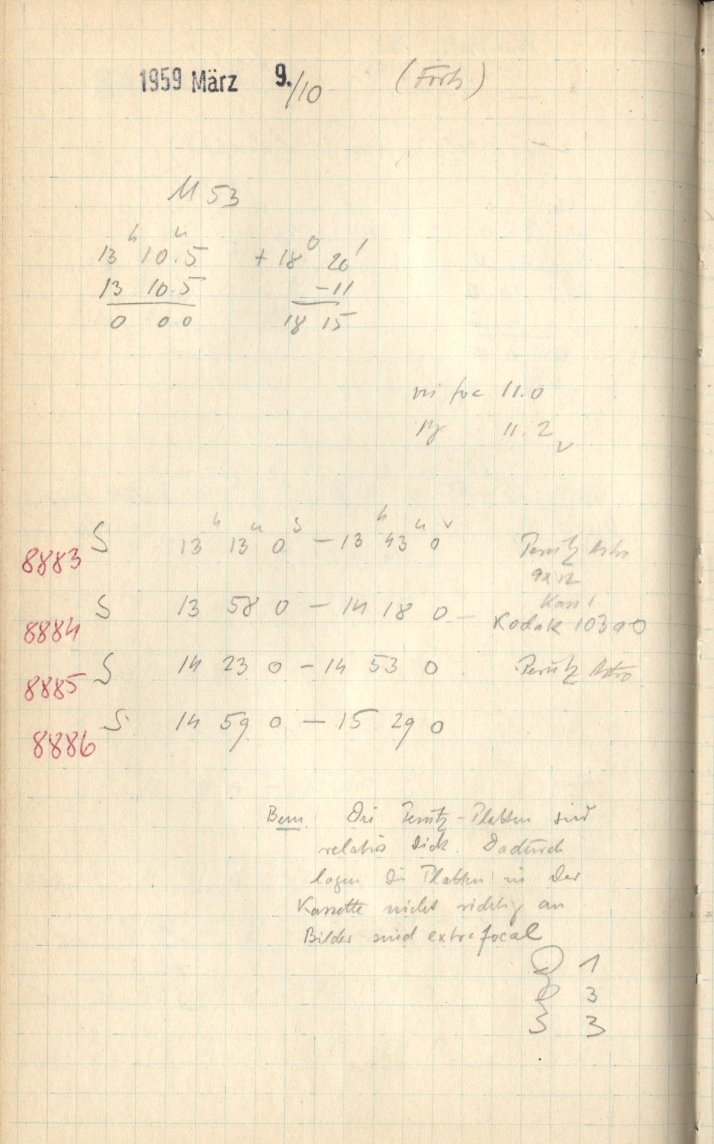 1959 März 9./10
M 53
13h 10.5 + 18° 26'
13 10.5 -11
0 0 0 18 15
vis foc 11.0
pg 11.2
8883 S 13 13 0 - 13 43 0 Perutz Astro
9x12
8884 S 13 58 0 - 14 18 0 Kodak 103a0
8885 S 14 23 0 - 14 53 0 Perutz Astro
8886 S 14 59 0 - 15 29 0
Bem Die Perutz-Platten sind
relativ dick. Dadurch
lagen die Platten in der
Kassette nicht richtig an
Bilder sind extrafocal
1
3
3 3